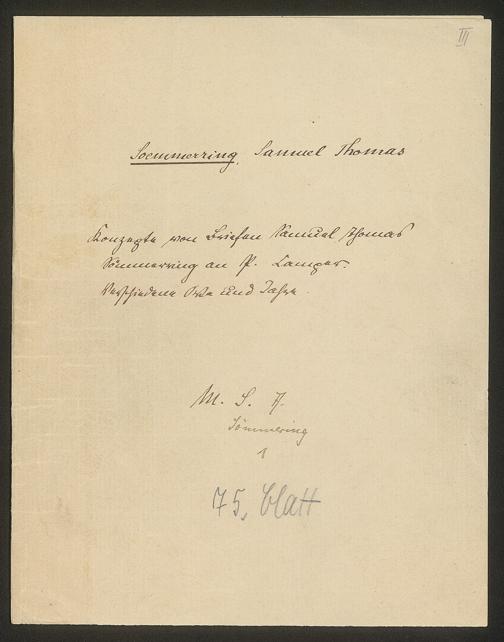 III
Soemmerring, Samuel Thomas
Konzepte von Briefen Samuel Thomas
Sömmerring an P. Camper.
Verschiedene Orte und Jahre.
M. S. 7.
Sömmering
1
75. blatt